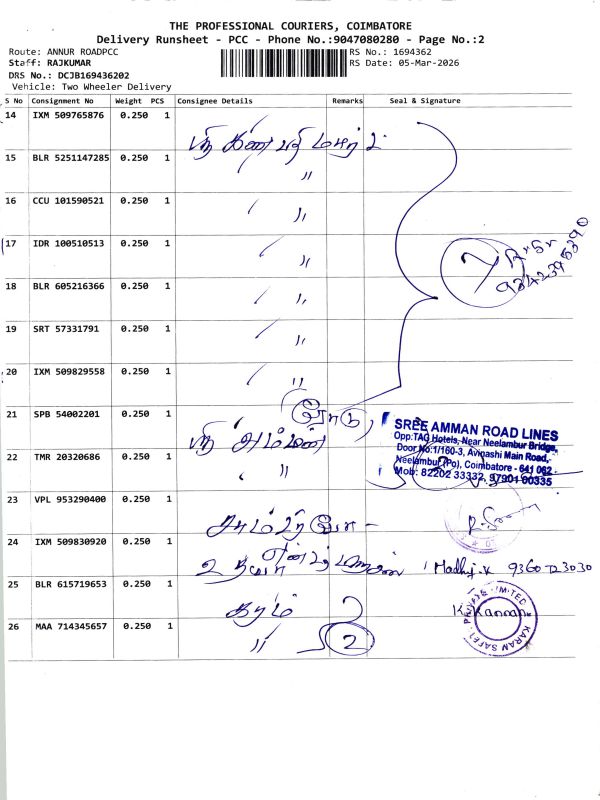 THE PROFESSIONAL COURIERS, COIMBATORE
Delivery Runsheet - PCC - Phone No.:9047080280 - Page No.:2
Route: ANNUR ROADPCC RS No.: 1694362
Staff: RAJKUMAR RS Date: 05-Mar-2026
DRS No.: DCJB169436202
Vehicle: Two Wheeler Delivery
S No Consignment No Weight PCS Consignee Details Remarks Seal & Signature
14 IXM 509765876 0.250 1
15 BLR 5251147285 0.250 1 "
16 CCU 101590521 0.250 1 "
17 IDR 100510513 0.250 1 "
7
9842395390
18 BLR 605216366 0.250 1 "
19 SRT 57331791 0.250 1 "
20 IXM 509829558 0.250 1 "
21 SPB 54002201 0.250 1
ஸ்ரீ அம்மன் ரோடு
SREE AMMAN ROAD LINES
Opp:TAG Hotels, Near Neelambur Bridge,
Door No:1/160-3, Avinashi Main Road,
Neelambur (Po), Coimbatore - 641 062
Mob: 82202 33332, 97901 00335
22 TMR 20320686 0.250 1 "
23 VPL 953290400 0.250 1
24 IXM 509830920 0.250 1
25 BLR 615719653 0.250 1
K. Kannan
26 MAA 714345657 0.250 1 " 2